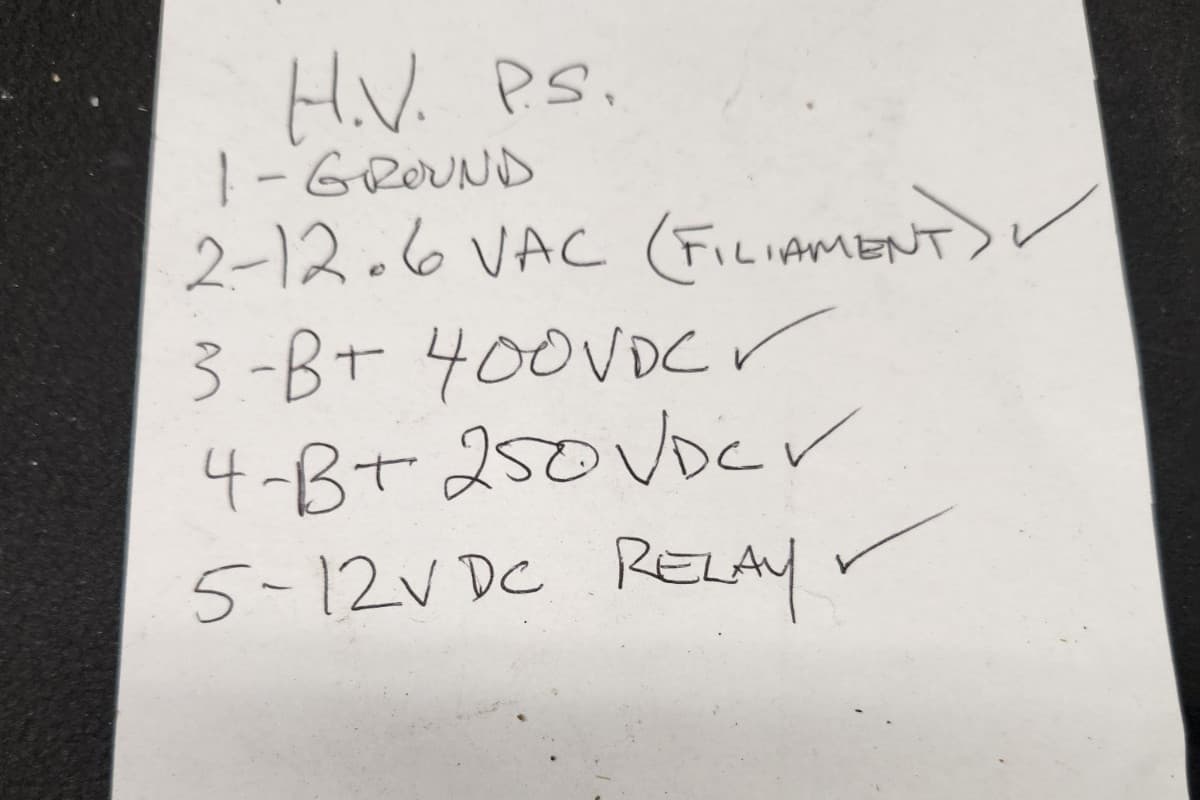 H.V. P.S.
1-GROUND
2-12.6 VAC (FILIAMENT) ✓
3-B+ 400VDC ✓
4-B+ 250VDC ✓
5-12VDC RELAY ✓